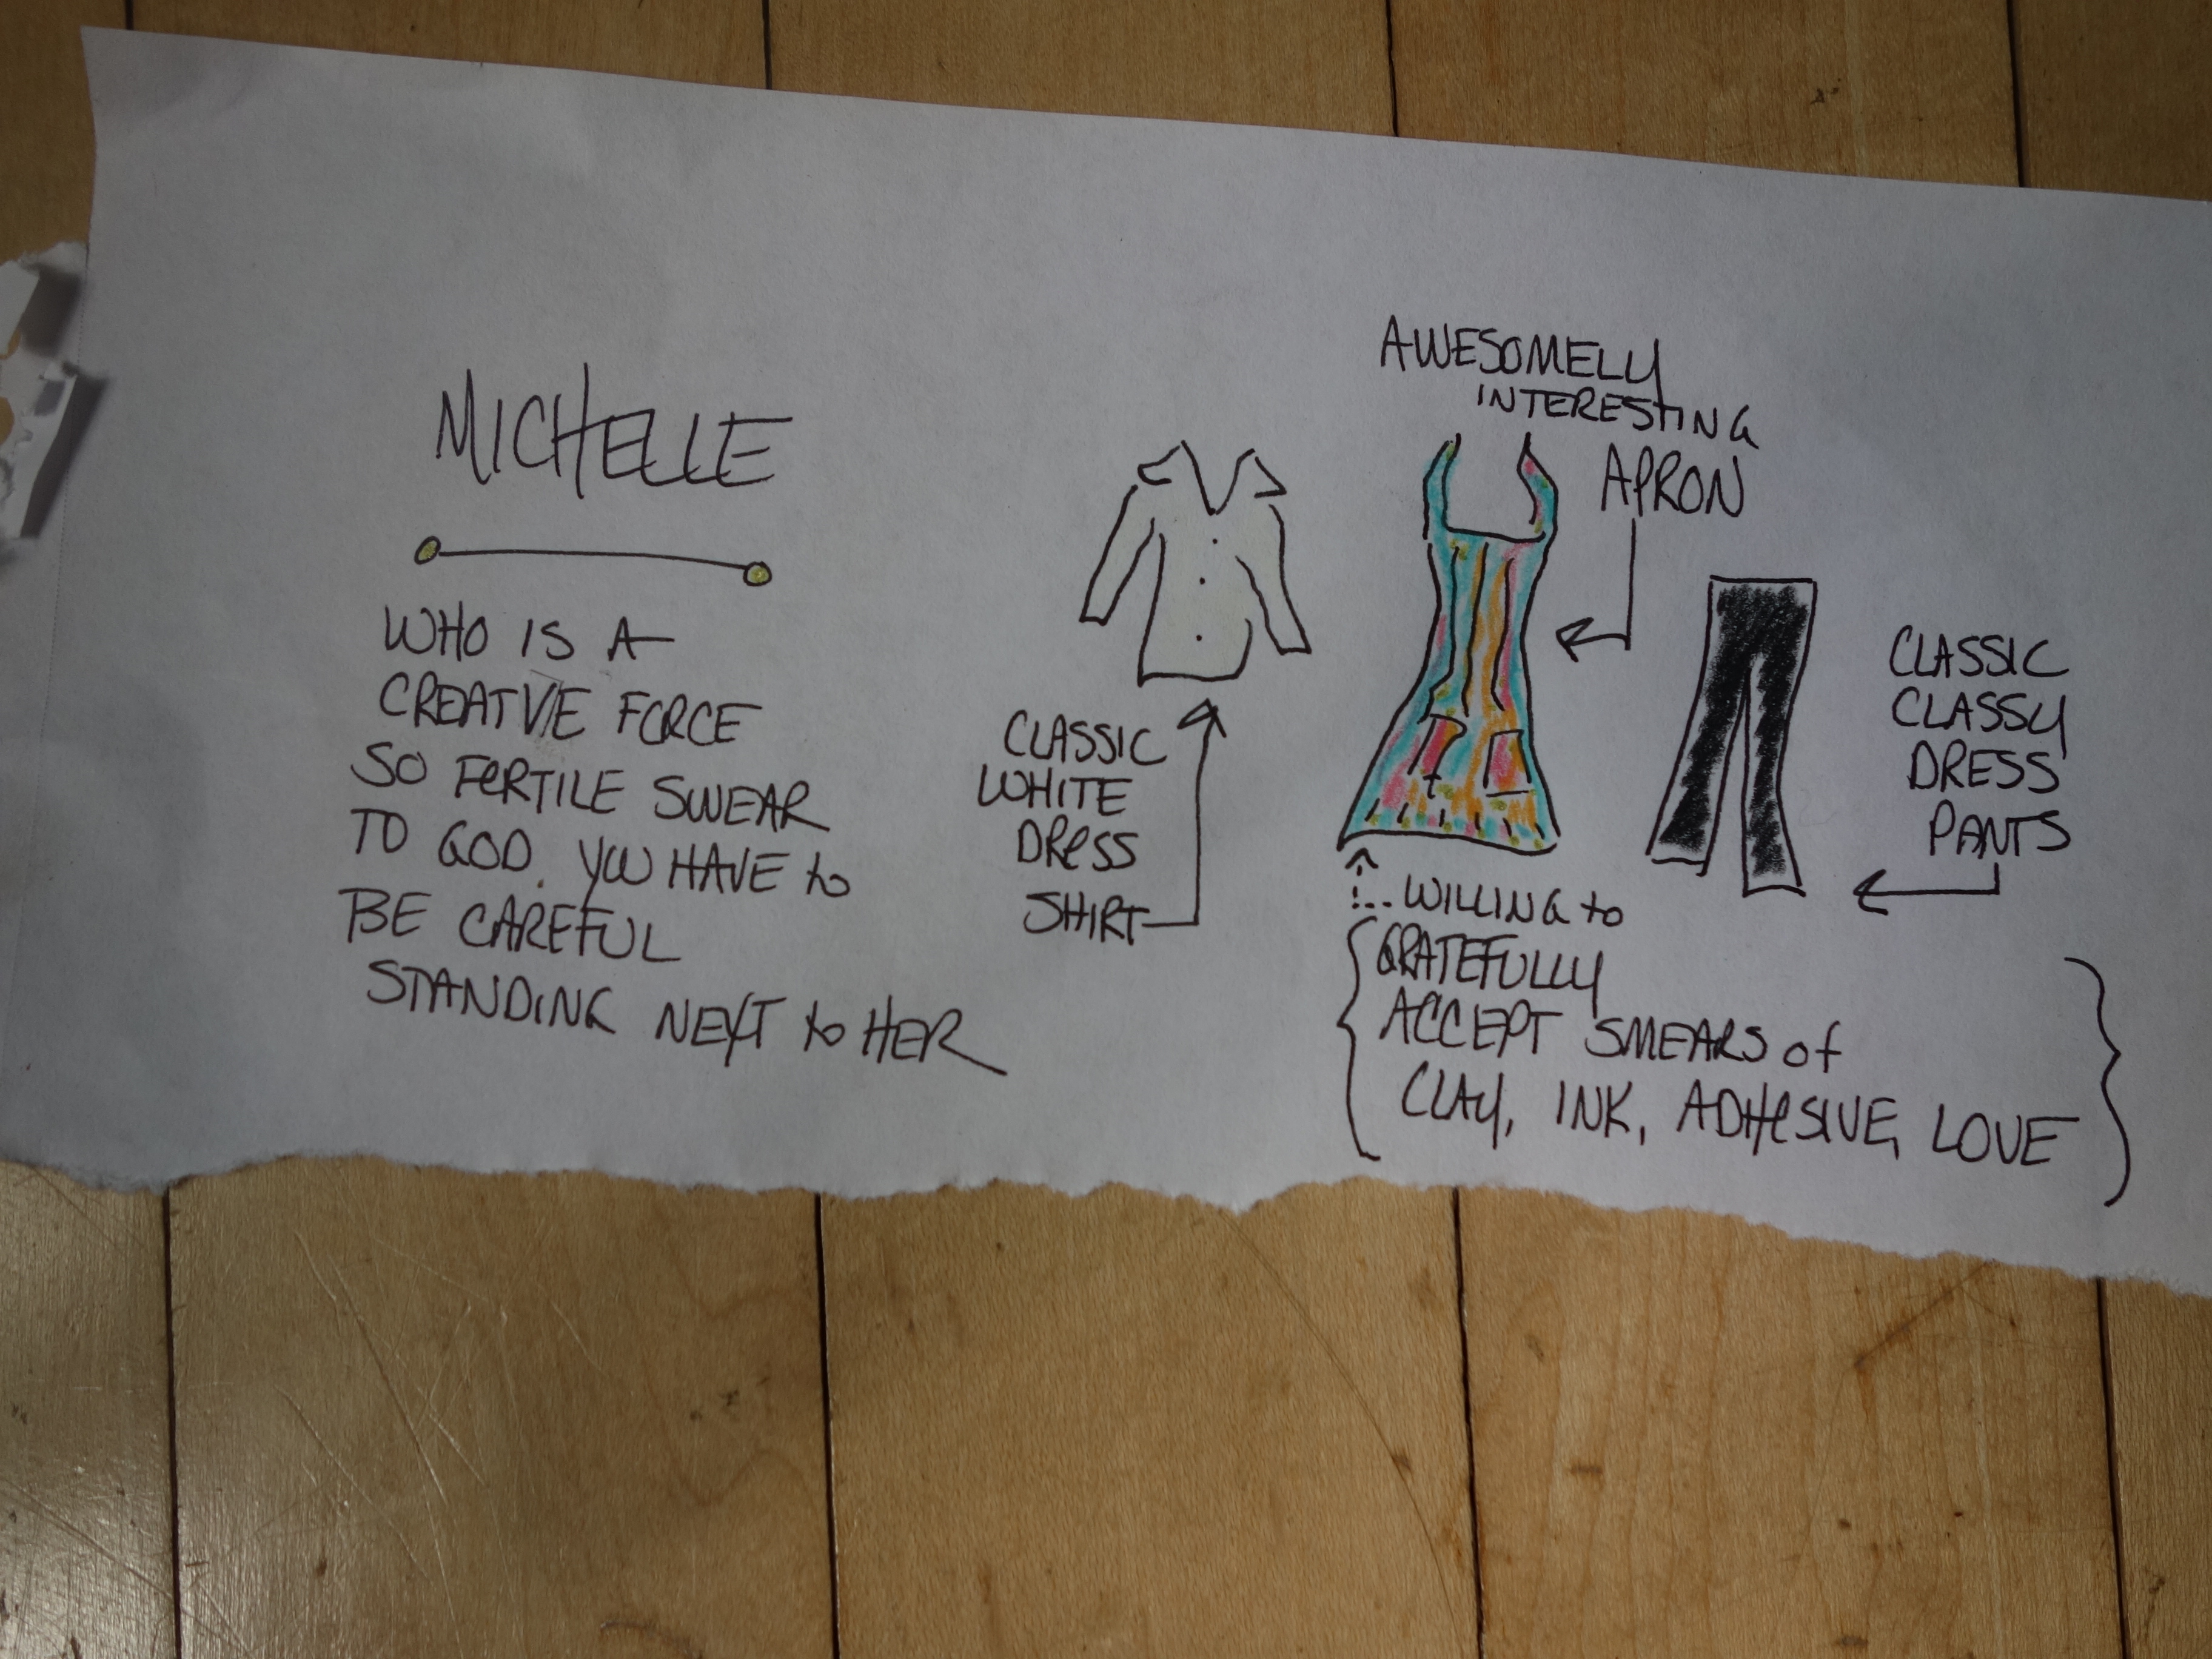 MICHELLE
WHO IS A
CREATVIE FORCE
SO FERTILE SWEAR
TO GOD. YOU HAVE to
BE CAREFUL
STANDING NEXT to HER
CLASSIC
WHITE
DRESS
SHIRT
AWESOMELY
INTERESTING
APRON
WILLING to
GRATEFULLY
ACCEPT SMEARS of
CLAY, INK, ADHESIVE, LOVE
CLASSIC
CLASSY
DRESS
PANTS